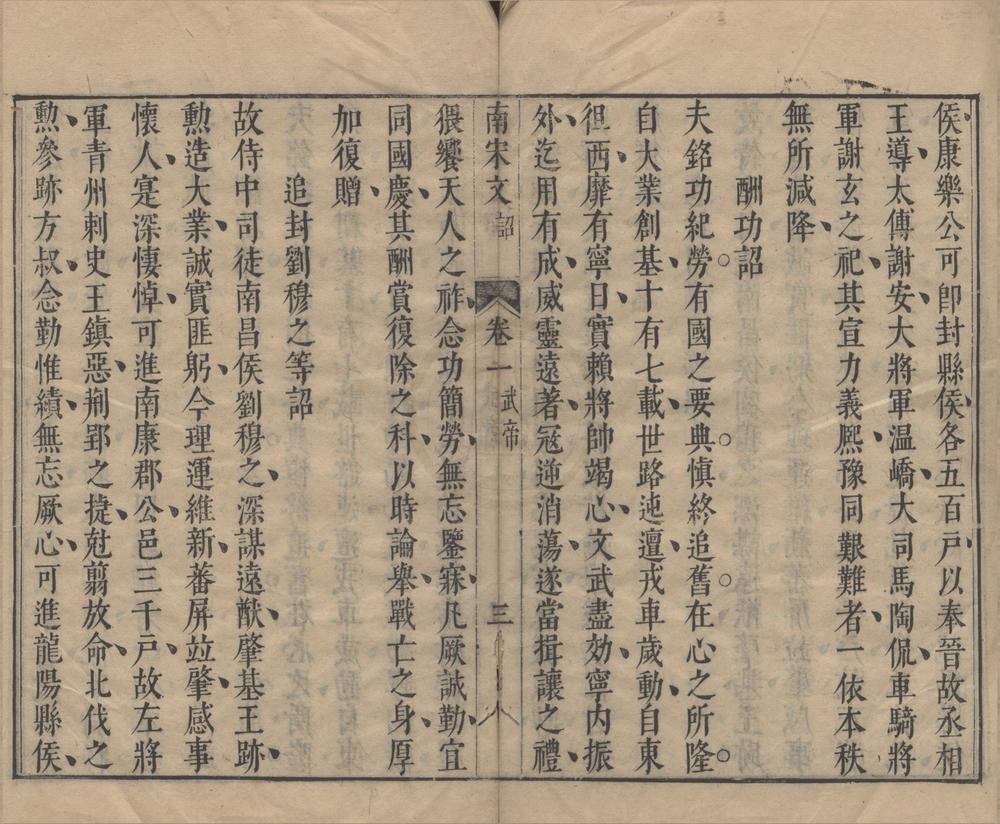 侯康樂公可卽封縣侯各五百戸以奉晉故丞相
王導太傅謝安大將軍温嶠大司馬陶侃車騎將
軍謝玄之祀其宣力義熙豫同艱難者一依本秩
無所減降
酬功詔
夫銘功紀勞有國之要典愼終追舊在心之所隆
自大業創基十有七載世路迍邅戎車歲動自東
徂西靡有寧日實賴將帥竭心文武盡効寧內振
外迄用有成威靈遠著寇逆消蕩遂當揖讓之禮
南宋文 詔 卷一 武帝 三
猥饗天人之祚念功簡勞無忘鑒寐凡厥誠勤宜
同國慶其酬賞復除之科以時論舉戰亡之身厚
加復贈
追封劉穆之等詔
故侍中司徒南昌侯劉穆之深謀遠猷肇基王跡
勲造大業誠實匪躬今理運維新蕃屏竝肇感事
懷人寔深悽悼可進南康郡公邑三千戸故左將
軍青州刺史王鎮惡荆郢之捷尅翦放命北伐之
勲參跡方叔念勤惟績無忘厥心可進龍陽縣侯